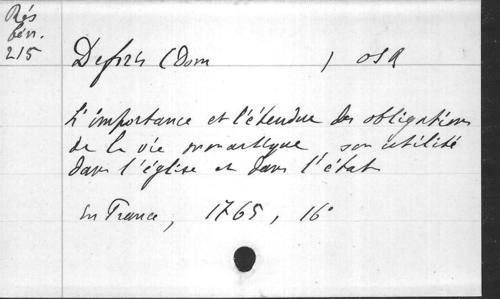 Rés
bén.
215
Defris (Dom ) OSB
L'importance et l'étendue des obligations
de la vie monastique, son utilité
dans l'église et dans l'état
En France, 1765, 16°